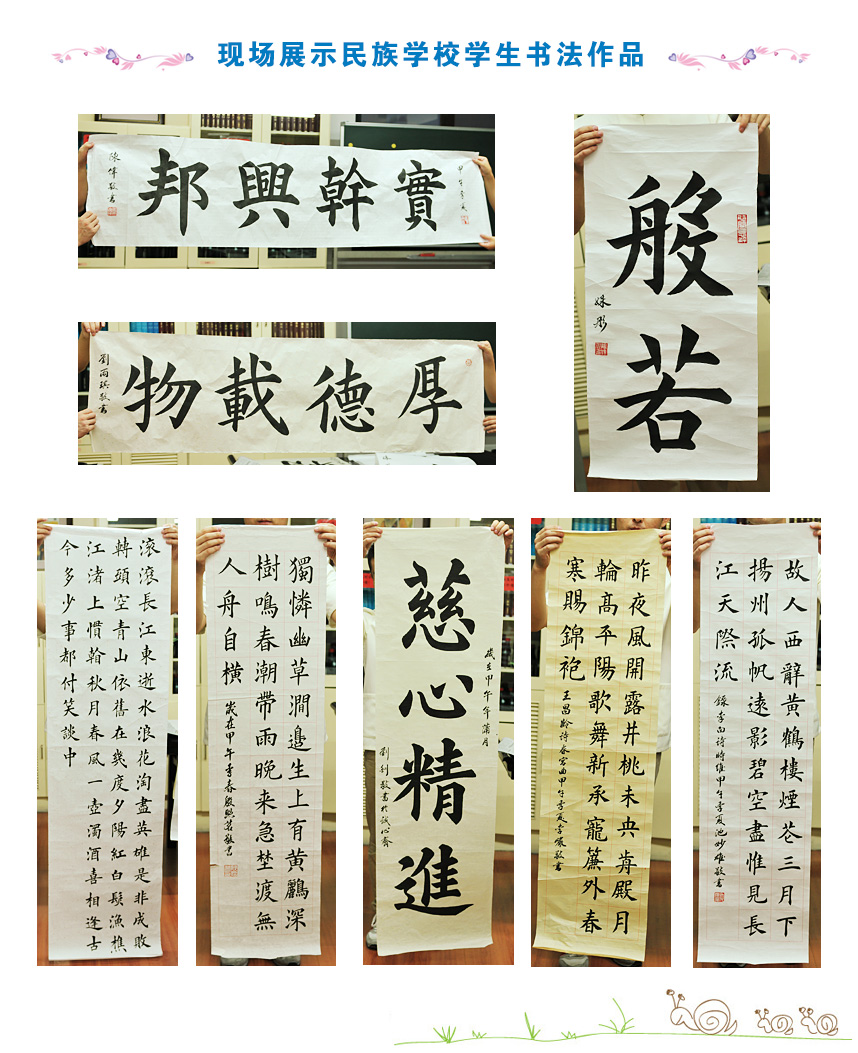 现场展示民族学校学生书法作品
甲午季夏
實幹興邦
陳偉敬書
般若
姝彤
厚德載物
劉雨琪敬書
滚滾長江東逝水浪花淘盡英雄是非成敗
轉頭空青山依舊在幾度夕陽紅白髮漁樵
江渚上慣看秋月春風一壺濁酒喜相逢古
今多少事都付笑談中
獨憐幽草澗邊生上有黃鸝深
樹鳴春潮帶雨晚来急埜渡無
人舟自橫
歲在甲午季春殷熙茗敬書
歲在甲午年蒲月
慈心精進
劉利敬書於誠心齋
昨夜風開露井桃未央歬殿月
輪高平陽歌舞新承寵簾外春
寒賜錦袍
王昌齡詩春宫曲甲午季夏李嚴敬書
故人西辭黃鶴樓煙花三月下
揚州孤帆遠影碧空盡惟見長
江天際流
錄李白詩時維甲午季夏池妙雄敬書